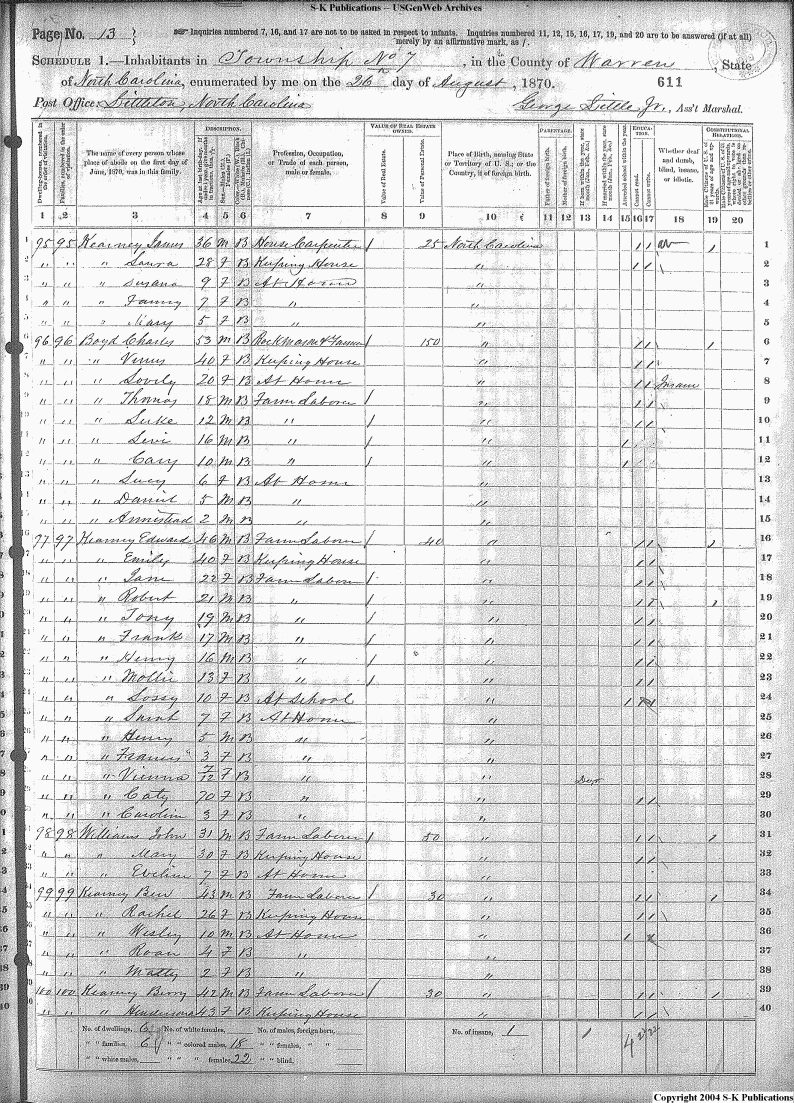 S-K Publications -- USGenWeb Archives
Page No. 13
Inquiries numbered 7, 16, and 17 are not to be asked in respect to infants. Inquiries numbered 11, 12, 15, 16, 17, 19, and 20 are to be answered (if at all) merely by an affirmative mark, as /.
SCHEDULE 1.—Inhabitants in Township No 7, in the County of Warren, State
of North Carolina, enumerated by me on the 26th day of August, 1870. 611
Post Office: Littleton, North Carolina George Little Jr, Ass't Marshal.
DESCRIPTION. VALUE OF REAL ESTATE OWNED. PARENTAGE. EDUCATION. CONSTITUTIONAL RELATIONS.
Dwelling-houses, numbered in the order of visitation.
Families, numbered in the order of visitation.
The name of every person whose place of abode on the first day of June, 1870, was in this family.
Profession, Occupation, or Trade of each person, male or female.
Value of Real Estate.
Value of Personal Estate.
Place of Birth, naming State or Territory of U. S.; or the Country, if of foreign birth.
Father of foreign birth.
Mother of foreign birth.
Attended school within the year.
Cannot read.
Cannot write.
Whether deaf and dumb, blind, insane, or idiotic.
1 2 3 4 5 6 7 8 9 10 11 12 13 14 15 16 17 18 19 20
1 95 95 Kearney James 36 M B House Carpenter / 25 North Carolina / / / 1
2 " " " Laura 28 F B Keeping House " / / 2
3 " " " Susana 9 F B At Home " 3
4 " " " Fanny 7 F B " " 4
5 " " " Mary 5 F B " " 5
6 96 96 Boyd Charles 53 M B Rock Mason & Farmer / 150 " / / / 6
7 " " " Venus 40 F B Keeping House " / / 7
8 " " " 20 F B At Home " / / Insane 8
9 " " " Thomas 18 M B Farm Laborer / " / / 9
10 " " " Luke 12 M B " / " / / 10
11 " " " Levi 16 M B " / " / 11
12 " " " Cary 10 M B " / " / 12
13 " " " Lucy 6 F B At Home " 13
14 " " " Daniel 5 M B " " 14
15 " " " Armistead 2 M B " " 15
16 97 97 Kearney Edward 46 M B Farm Laborer / 40 " / / / 16
17 " " " Emily 40 F B Keeping House " / / 17
18 " " " Jane 22 F B Farm Laborer / " / / 18
19 " " " Robert 21 M B " / " / / / 19
20 " " " Tony 19 M B " / " / / 20
21 " " " Frank 17 M B " / " / / 21
22 " " " Henry 16 M B " / " / / 22
23 " " " Mollie 13 F B " / " / / 23
24 " " " Lossy 10 F B At School " / / 24
25 " " " Sarah 7 F B At Home " 25
26 " " " Henry 5 M B " " 26
27 " " " Francis 3 F B " " 27
28 " " " Vienna 7/12 F B " " 28
29 " " " Caty 70 F B " " / / 29
30 " " " Carolin 3 F B " " 30
31 98 98 Williams John 31 M B Farm Laborer / 50 " / / / 31
32 " " " Mary 30 F B Keeping House " / / 32
33 " " " Eveline 7 F B At Home " 33
34 99 99 Kearney Ben 43 M B Farm Laborer / 30 " / / / 34
35 " " " Rachel 26 F B Keeping House " / / 35
36 " " " Wesley 10 M B At Home " / 36
37 " " " Roan 4 F B " " 37
38 " " " Matty 2 F B " " 38
39 100 100 Kearney Berry 42 M B Farm Laborer / 30 " / / / 39
40 " " " Henderson 43 F B Keeping House " / / 40
No. of dwellings, 6 No. of white females, No. of males, foreign born, No. of insane, 1
" " families, 6 " " colored males, 18 " " females, " "
" " white males, " " " females, 22 " " blind,
Copyright 2004 S-K Publications